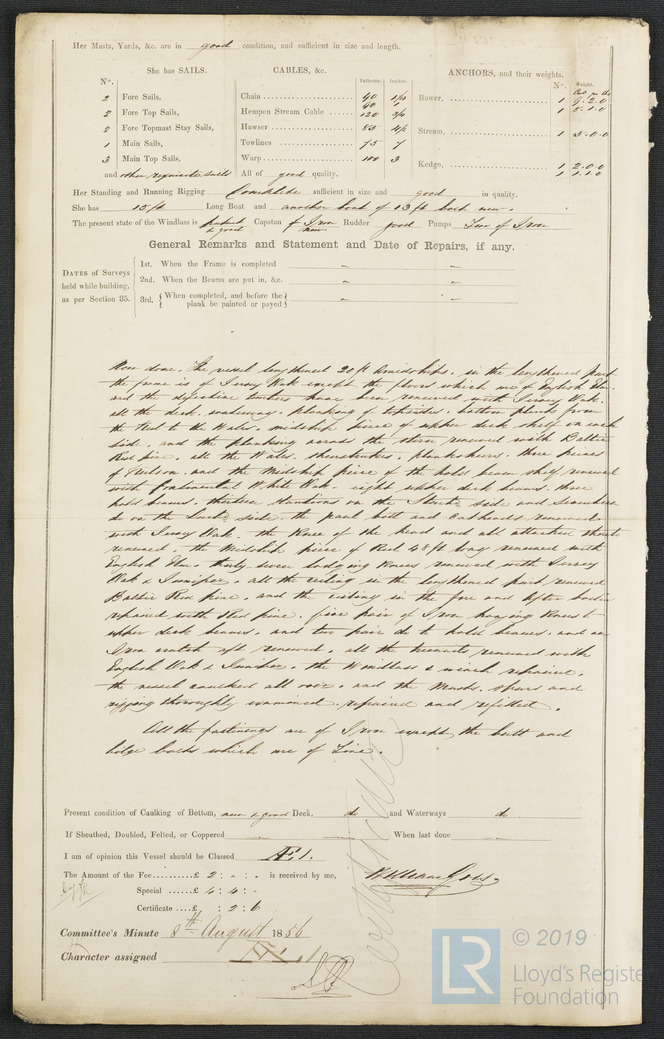 Her Masts, Yards, &c. are in good condition, and sufficient in size and length.
She has SAILS. CABLES, &c. ANCHORS, and their weights.
N°. Fathoms. Inches. N°. Weight.
2 Fore Sails, Chain 40
2 Fore Top Sails, Hempen Stream Cable 120 Bower, 1 9.2.0
2 Fore Topmast Stay Sails, Hawser 85 Stream, 1 3.0.0
1 Main Sails, Towlines 75 7
3 Main Top Sails, Warp 100 3 Kedge, 1 2.0.0
and other requisite sails All of good quality. 1 1.1.0
Her Standing and Running Rigging Complete sufficient in size and good in quality.
She has 15 ft Long Boat and another boat of 13 ft both new.
The present state of the Windlass is patent & good Capstan of Iron new Rudder good Pumps Two of Iron
General Remarks and Statement and Date of Repairs, if any.
DATES of Surveys held while building, as per Section 35.
1st. When the Frame is completed
2nd. When the Beams are put in, &c.
3rd. {When completed, and before the plank be painted or payed}
Now done. The vessel lengthened 20 ft Amidships. in the lengthened part
the frame is of Jersey Oak except the floors which are of English Elm.
and the defective timbers have been renewed with Jersey Oak.
all the deck, planking of topsides, bottom plank from
the Keel to the Wales, midship piece of upper deck shelf on each
side, and the planking across the stern renewed with Baltic
Red pine, all the Wales, planksheers, three pieces
of Keelson and the Midship piece of the hold beam shelf renewed
with Continental White Oak. eight upper deck beams, three
hold beams, thirteen stantions on the Starb side and
do on the Larb side, the paul bitt and Catheads renewed
with Jersey Oak, the Knee of the head and all attached
renewed. the Midship piece of Keel 48 ft long renewed with
English Elm. thirty seven lodging Knees renewed with Jersey
Oak & Juniper. all the ceiling in the lengthened part renewed
Baltic Red pine, and the ceiling in the fore and after bodies
repaired with Red pine. five pair of Iron hanging Knees to
upper deck beams, and two pair do to hold beams, and an
Iron crutch aft renewed. all the treenails renewed with
English Oak & Juniper. the Windlass & winch repaired.
the vessel caulked all over, and the Masts, Spars and
rigging thoroughly examined, repaired and refitted.
All the fastenings are of Iron except the butt and
bilge bolts which are of Zinc.
Present condition of Caulking of Bottom, new & good Deck, do and Waterways do
If Sheathed, Doubled, Felted, or Coppered When last done
I am of opinion this Vessel should be Classed Æ.1.
The Amount of the Fee £ 2 : - : - is received by me,
Special £ 4 : 4 : -
Certificate £ : 2 : 6
Committee's Minute 8th August 1856
Character assigned Æ 1
© 2019
LR
Lloyd's Register
Foundation